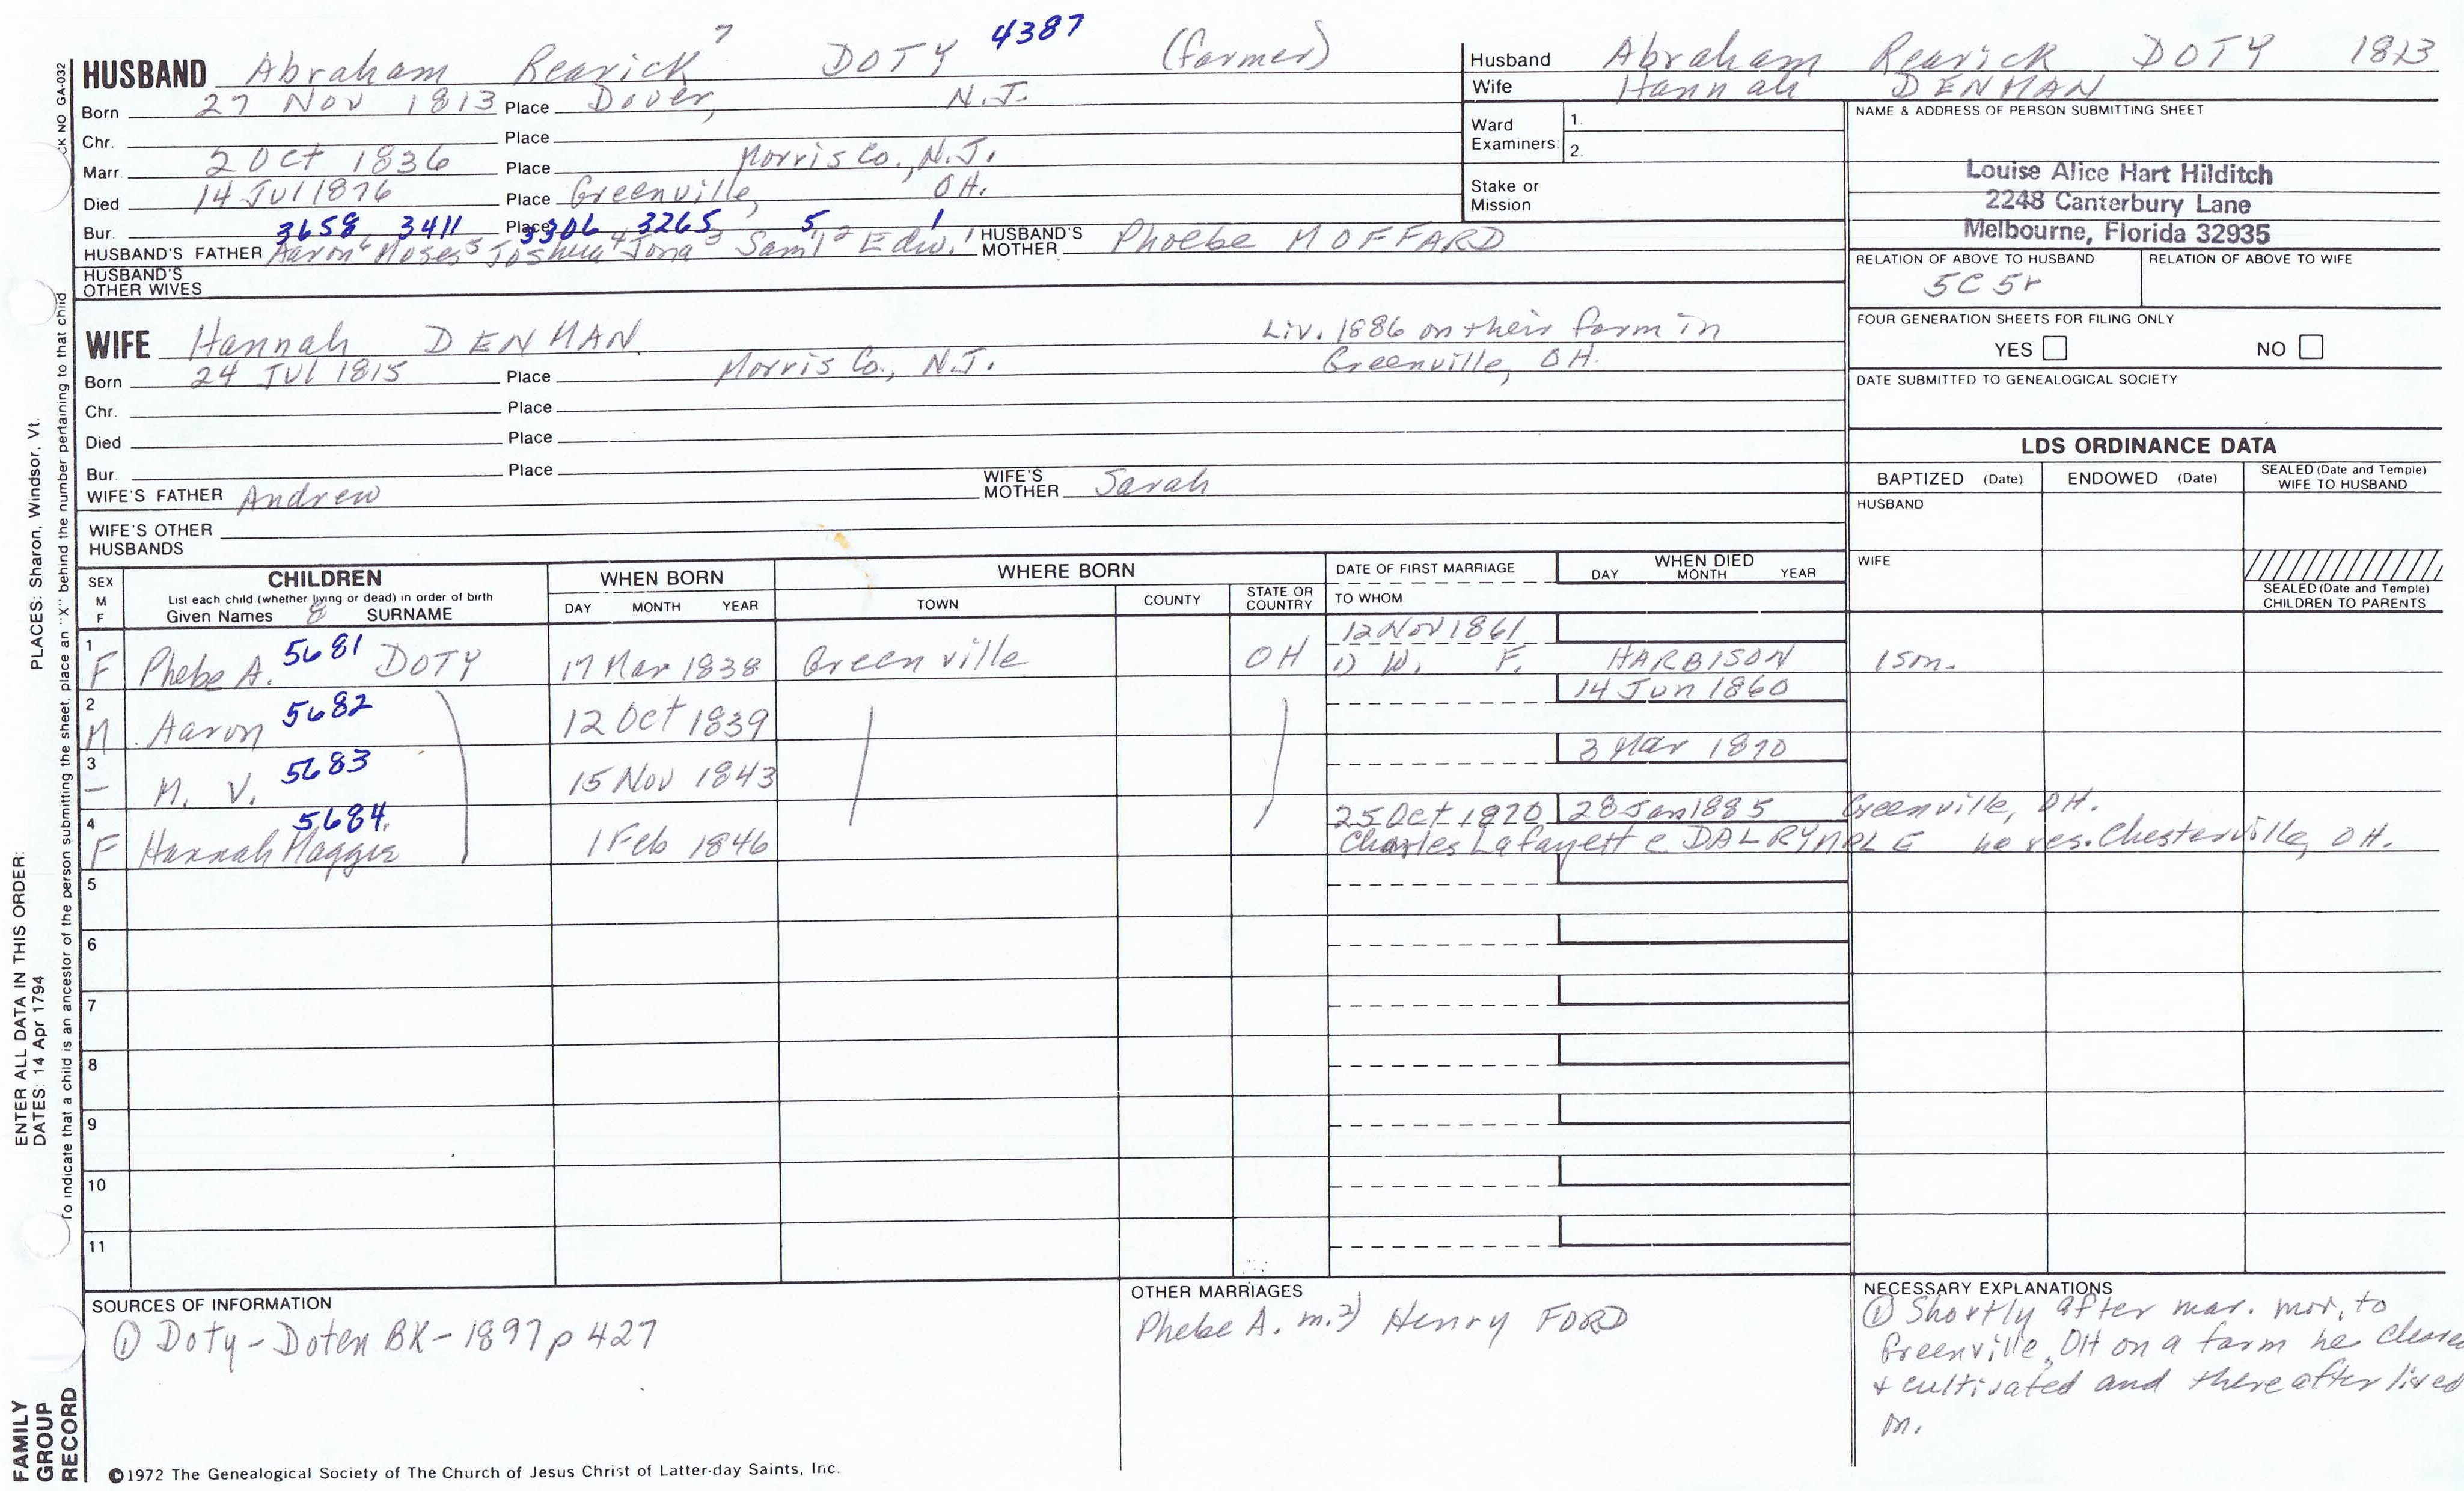 HUSBAND Abraham Rearick 7 DOTY 4387 (farmer)
Born 27 Nov 1813 Place Dover, N.J.
Chr. Place
Marr. 2 Oct 1836 Place Morris Co., N.J.
Died 14 Jul 1876 Place Greenville, OH.
Bur. 3658 3411 Place 3306 3265 5 1
HUSBAND'S FATHER Aaron6 Moses5 Joshua4 Jona3 Saml2 Edw.1 HUSBAND'S MOTHER Phoebe MOFFARD
HUSBAND'S OTHER WIVES
WIFE Hannah DENMAN Liv. 1886 on their farm in
Greenville, OH.
Born 24 Jul 1815 Place Morris Co., N.J.
Chr. Place
Died Place
Bur. Place
WIFE'S FATHER Andrew WIFE'S MOTHER Sarah
WIFE'S OTHER HUSBANDS
Husband Abraham Rearick DOTY 1813
Wife Hannah DENMAN
Ward Examiners: 1.
2.
Stake or Mission
NAME & ADDRESS OF PERSON SUBMITTING SHEET
Louise Alice Hart Hilditch
2248 Canterbury Lane
Melbourne, Florida 32935
RELATION OF ABOVE TO HUSBAND RELATION OF ABOVE TO WIFE
5C 5r
FOUR GENERATION SHEETS FOR FILING ONLY
YES NO
DATE SUBMITTED TO GENEALOGICAL SOCIETY
LDS ORDINANCE DATA
BAPTIZED (Date) ENDOWED (Date) SEALED (Date and Temple) WIFE TO HUSBAND
HUSBAND
WIFE
SEALED (Date and Temple) CHILDREN TO PARENTS
SEX M F CHILDREN WHEN BORN WHERE BORN DATE OF FIRST MARRIAGE WHEN DIED
List each child (whether living or dead) in order of birth
Given Names 8 SURNAME DAY MONTH YEAR TOWN COUNTY STATE OR COUNTRY TO WHOM DAY MONTH YEAR
1 F Phebe A. 5681 DOTY 17 Mar 1838 Greenville OH 12 Nov 1861
1) W. F. HARBISON 1sm.
2 M Aaron 5682 12 Oct 1839 14 Jun 1860
3 — M. V. 5683 15 Nov 1843 3 Mar 1870
4 F Hannah Maggie 5684. 1 Feb 1846 25 Oct 1870 28 Jan 1885 Greenville, OH.
Charles Lafayette DALRYMPLE he res. Chesterville, OH.
5
6
7
8
9
10
11
SOURCES OF INFORMATION
① Doty-Doten BK-1897 p 427
OTHER MARRIAGES
Phebe A. m. 2) Henry FORD
NECESSARY EXPLANATIONS
① Shortly after mar. mov. to
Greenville, OH on a farm he
& cultivated and thereafter lived
©1972 The Genealogical Society of The Church of Jesus Christ of Latter-day Saints, Inc.
CK NO GA-032
To indicate that a child is an ancestor of the person submitting the sheet, place an "X" behind the number pertaining to that child
ENTER ALL DATA IN THIS ORDER:
DATES: 14 Apr 1794 PLACES: Sharon, Windsor, Vt.
FAMILY
GROUP
RECORD